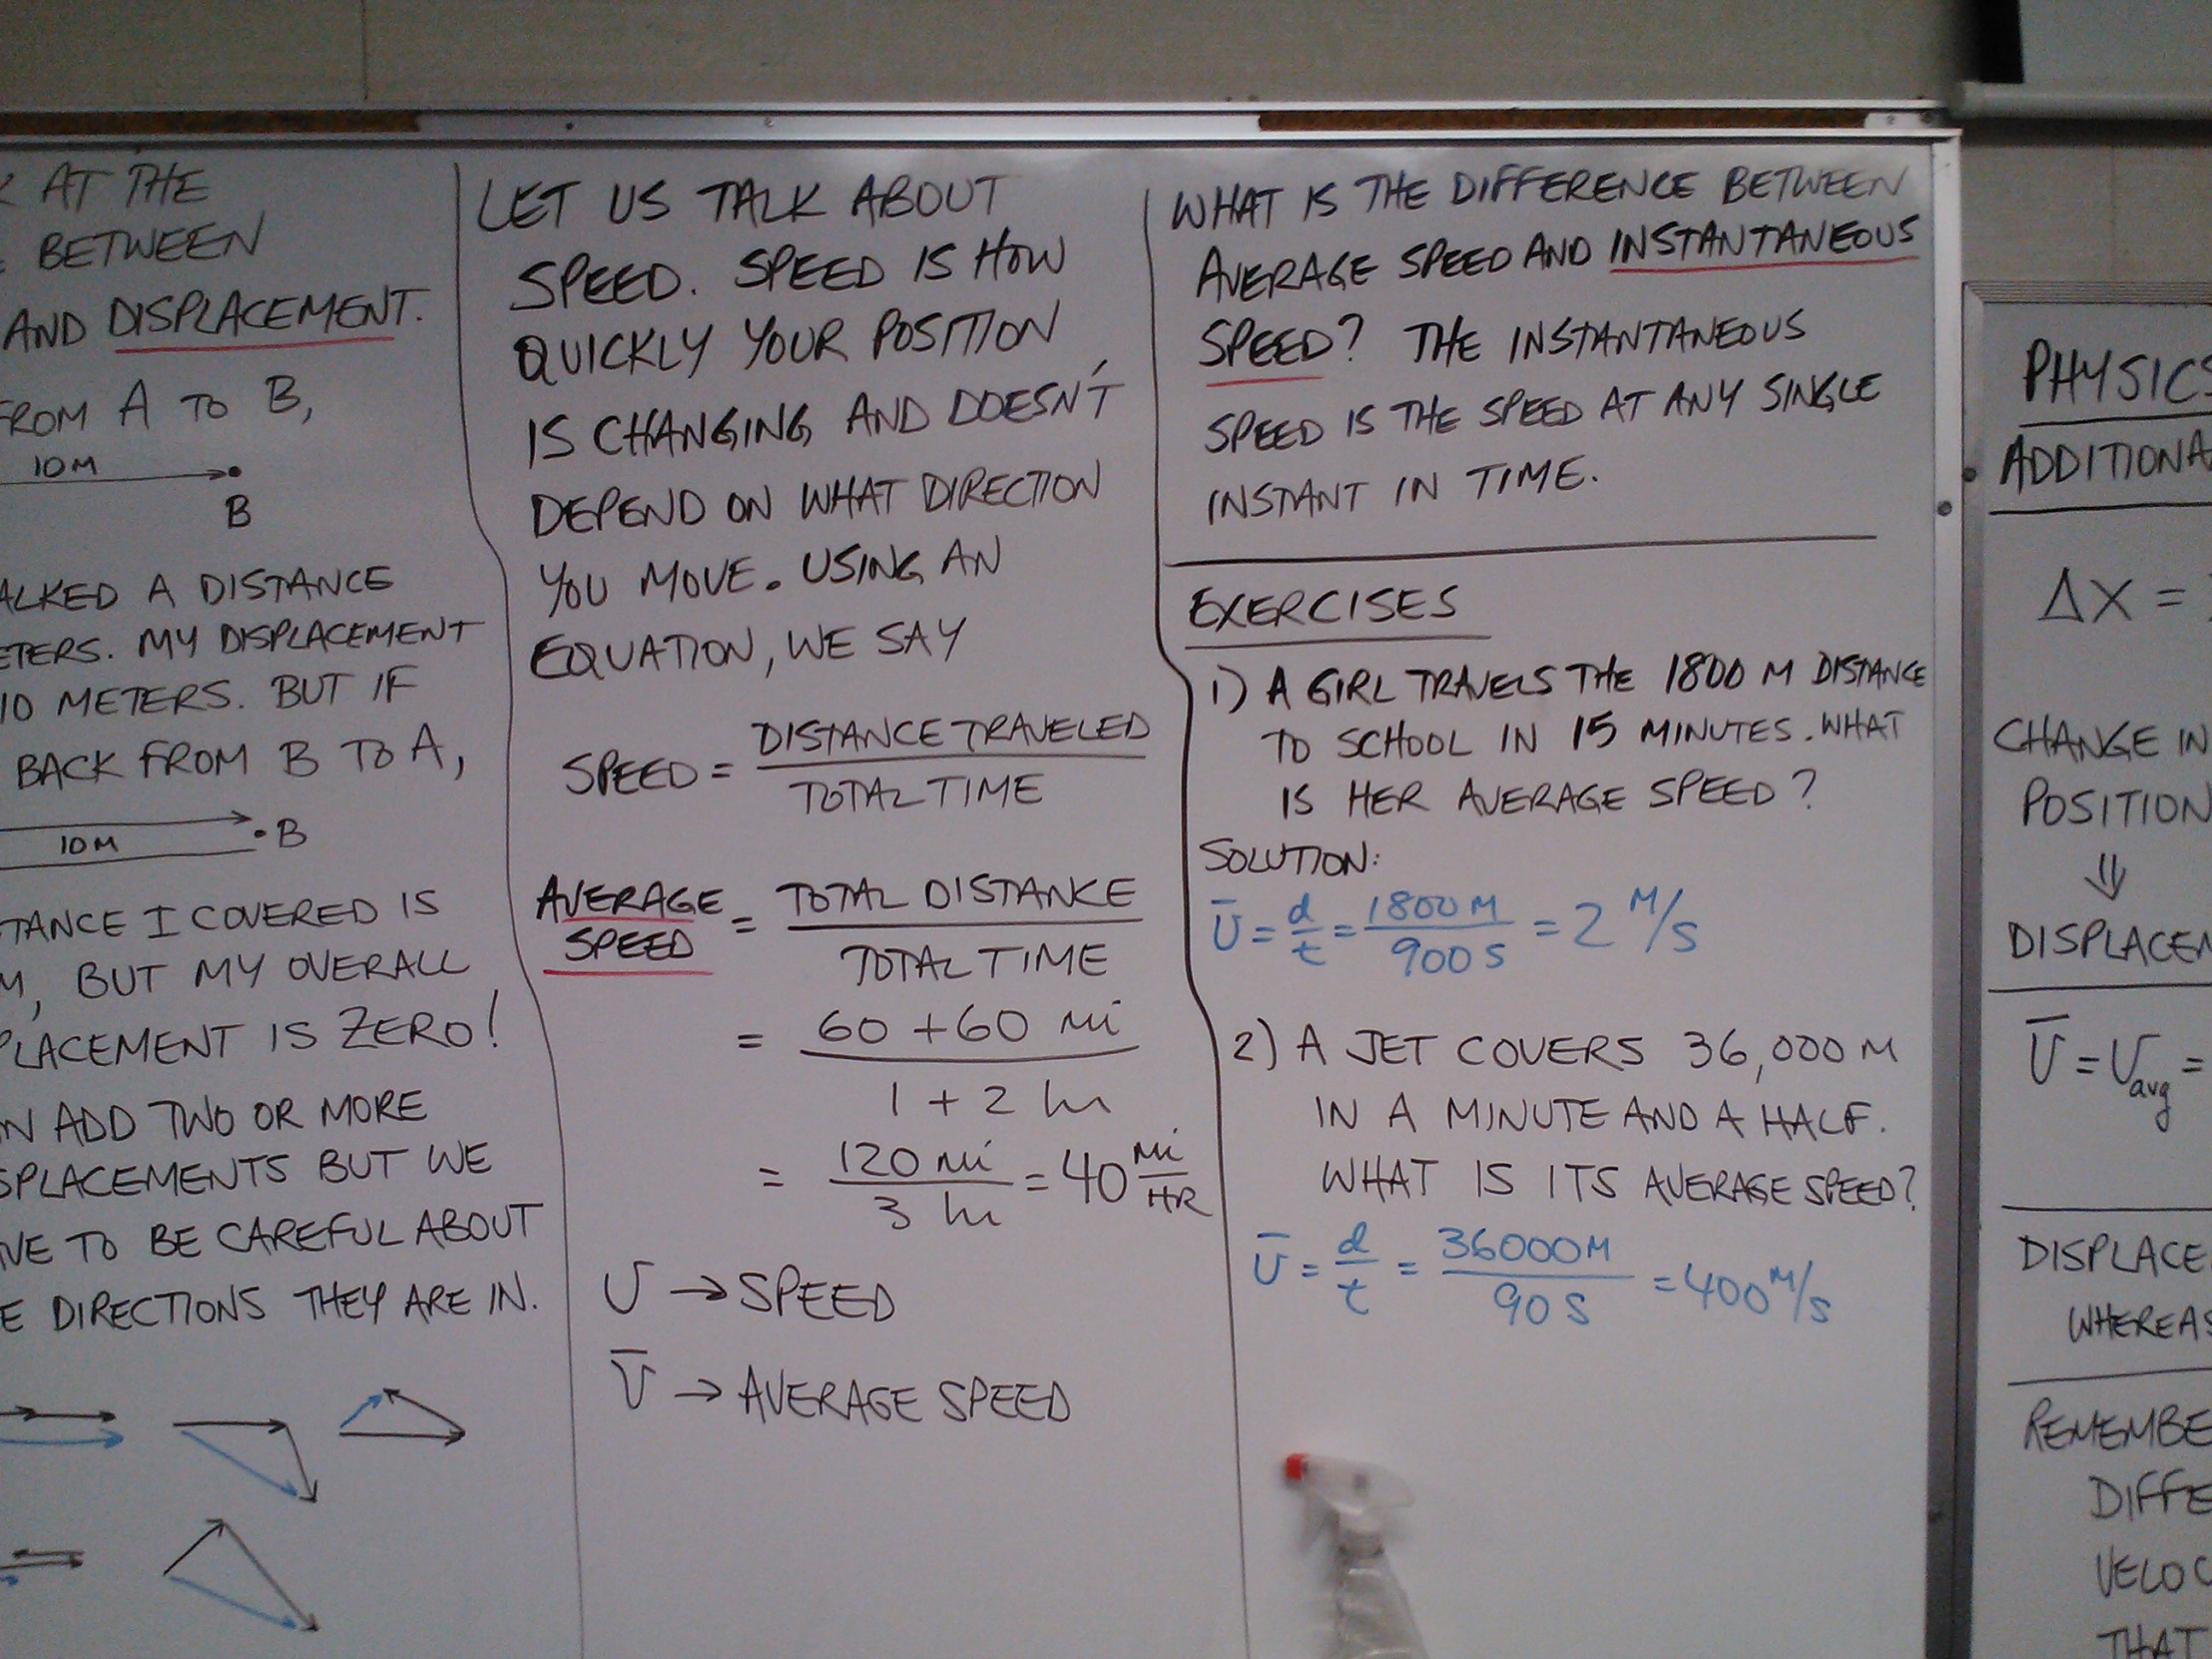 K AT THE
E BETWEEN
AND DISPLACEMENT.
FROM A TO B,
10 M
B
ALKED A DISTANCE
ETERS. MY DISPLACEMENT
10 METERS. BUT IF
BACK FROM B TO A,
10 M
B
TANCE I COVERED IS
M, BUT MY OVERALL
PLACEMENT IS ZERO!
N ADD TWO OR MORE
SPLACEMENTS BUT WE
VE TO BE CAREFUL ABOUT
E DIRECTIONS THEY ARE IN.
LET US TALK ABOUT
SPEED. SPEED IS HOW
QUICKLY YOUR POSITION
IS CHANGING AND DOESN'T
DEPEND ON WHAT DIRECTION
YOU MOVE. USING AN
EQUATION, WE SAY
SPEED = DISTANCE TRAVELED / TOTAL TIME
AVERAGE SPEED = TOTAL DISTANCE / TOTAL TIME
= 60 + 60 mi / 1 + 2 hr
= 120 mi / 3 hr = 40 Mi/HR
U → SPEED
Ū → AVERAGE SPEED
WHAT IS THE DIFFERENCE BETWEEN
AVERAGE SPEED AND INSTANTANEOUS
SPEED? THE INSTANTANEOUS
SPEED IS THE SPEED AT ANY SINGLE
INSTANT IN TIME.
EXERCISES
1) A GIRL TRAVELS THE 1800 M DISTANCE
TO SCHOOL IN 15 MINUTES. WHAT
IS HER AVERAGE SPEED?
SOLUTION:
Ū = d/t = 1800 M / 900 S = 2 M/S
2) A JET COVERS 36,000 M
IN A MINUTE AND A HALF.
WHAT IS ITS AVERAGE SPEED?
Ū = d/t = 36000 M / 90 S = 400 M/S
PHYSICS
ADDITIONA
ΔX =
CHANGE IN
POSITION
⇓
DISPLACEM
Ū = Uavg =
DISPLACE
WHEREAS
REMEMBE
DIFFE
VELOC
THAT